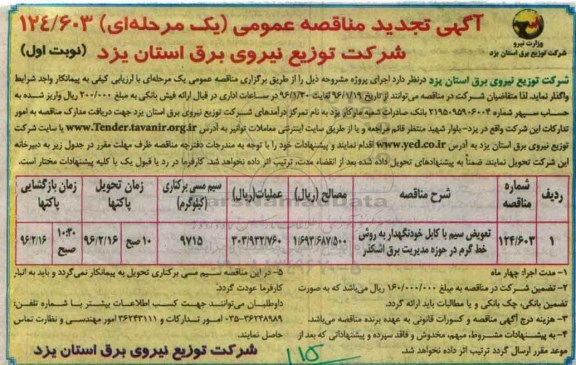 آگهی تجدید مناقصه عمومی (یک مرحله‌ای) ۱۲۴/۶۰۳
شرکت توزیع نیروی برق استان یزد (نوبت اول)
وزارت نیرو
شرکت توزیع نیروی برق استان یزد
شرکت توزیع نیروی برق استان یزد درنظر دارد اجرای پروژه مشروحه ذیل را از طریق برگزاری مناقصه عمومی یک مرحله‌ای با ارزیابی کیفی به پیمانکار واجد شرایط
واگذار نماید. لذا متقاضیان شرکت در مناقصه می‌توانند از تاریخ ۹۶/۱/۱۹ لغایت ۹۶/۱/۳۰ در ساعات اداری در قبال ارائه فیش بانکی به مبلغ ۲۰۰/۰۰۰ ریال واریز شده به
حساب سپهر شماره ۰۲۱۹۵۰۹۵۹۰۶۰۰۴ بانک صادرات شعبه مارکار یزد به نام تمرکز درآمدهای شرکت توزیع برق استان یزد جهت دریافت مدارک مناقصه به امور
تدارکات این شرکت واقع در یزد- بلوار شهید منتظر قائم مراجعه و یا از طریق سایت اینترنتی معاملات توانیر به آدرس www.Tender.tavanir.org.ir یا سایت شرکت
توزیع نیروی برق استان یزد به آدرس www.yed.co.ir اقدام نمایند و پیشنهادات خود را با توجه به مندرجات دفترچه مناقصه ظرف مهلت مقرر در جدول زیر به دبیرخانه
این شرکت تحویل نمایند. ضمناً به پیشنهادهای تحویل داده شده بعد از انقضاء مدت، ترتیب اثر داده نخواهد شد. کارفرما در رد یا قبول یک یا کلیه پیشنهادات مختار است.
ردیف شماره مناقصه شرح مناقصه مصالح (ریال) عملیات(ریال) سیم مسی برکناری (کیلوگرم) زمان تحویل پاکتها زمان بازگشایی پاکتها
۱ ۱۲۴/۶۰۳ تعویض سیم با کابل خودنگهدار به روش خط گرم در حوزه مدیریت برق اشکذر ۱/۶۹۳/۶۸۷/۵۰۰ ۳۰۳/۹۳۲/۷۶۰ ۹۷۱۵ ۱۰ صبح ۹۶/۲/۱۶ ۱۰:۳۰ صبح ۹۶/۲/۱۶
۱- مدت اجرا: چهار ماه
۲- تضمین شرکت در مناقصه به مبلغ ۱۶۰/۰۰۰/۰۰۰ ریال می‌باشد که به صورت
تضمین بانکی، چک بانکی و یا مطالبات باید ارائه گردد.
۳- هزینه درج آگهی مناقصه و کسورات قانونی به عهده برنده مناقصه می‌باشد.
۴- به پیشنهادات مشروط، مبهم، مخدوش و فاقد سپرده و پیشنهاداتی که بعد از
موعد مقرر ارسال گردد ترتیب اثر داده نخواهد شد.
۵- در این مناقصه سیم مسی برکناری تحویل به پیمانکار نمی‌گردد و باید به انبار
کارفرما عودت گردد.
داوطلبان می‌توانند جهت کسب اطلاعات بیشتر با شماره تلفن:
۰۳۵-۳۶۲۴۸۹۸۹ امور تدارکات و ۳۶۲۴۳۱۱۱ امور مهندسی و نظارت تماس
حاصل نمایند.
شرکت توزیع نیروی برق استان یزد
۱۱۵